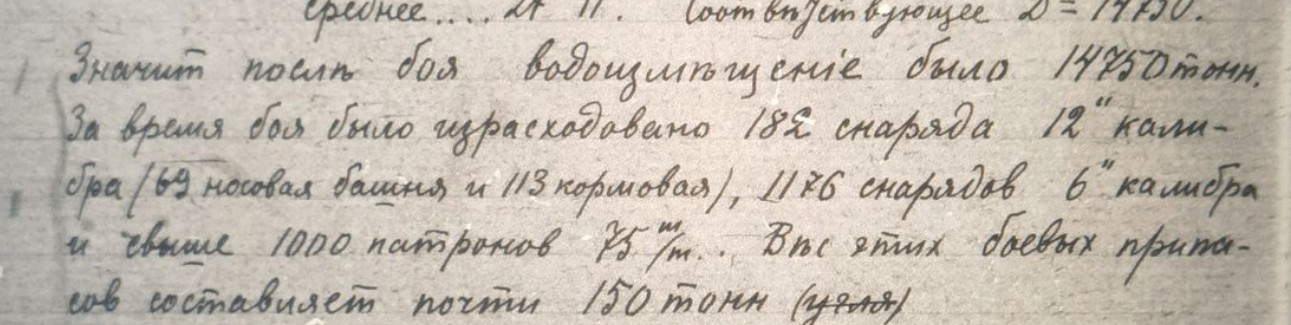 среднее.... 27' 11". Соотвѣтствующее D = 14750.
Значит послѣ боя водоизмѣщеніе было 14750 тонн.
За время боя было израсходовано 182 снаряда 12" кали-
бра (69 носовая башня и 113 кормовая), 1176 снарядов 6" калибра
и свыше 1000 патронов 75 m/m.. Вѣс этих боевых припа-
сов составляет почти 150 тонн (угля)